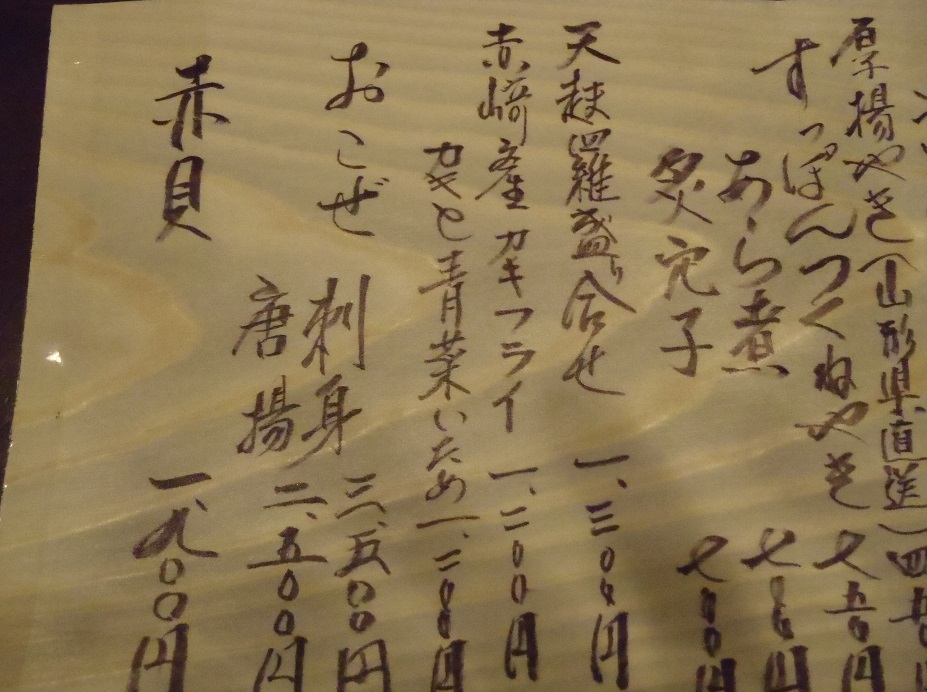 厚揚やき(山形県直送) 四五〇
すっぽんつくねやき 七五〇円
あら煮 七〇〇円
炙穴子 七〇〇円
天麩羅盛り合せ 一、三〇〇円
赤崎産カキフライ 一、二〇〇円
カキと青菜いため 一、二〇〇円
おこぜ 刺身 三、五〇〇円
唐揚 二、五〇〇円
赤貝 一、九〇〇円